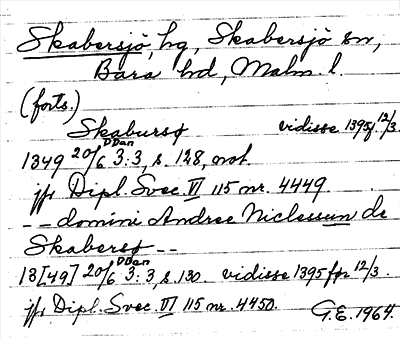 Skabersjö, hg, Skabersjö sn,
Bara hd, Malm. l.
(forts.)
Skabursø vidisse 1395 f. 12/3.
1349 20/6 DDan 3:3, s. 128, avt.
jfr Dipl. Svec. VI 115 nr. 4449.
-- domini Andree Niclessun de
Skabersø --
13[49] 20/6 DDan 3:3, s. 130. vidisse 1395 för 12/3.
jfr Dipl. Svec. VI 115 nr. 4450. G.E. 1964.